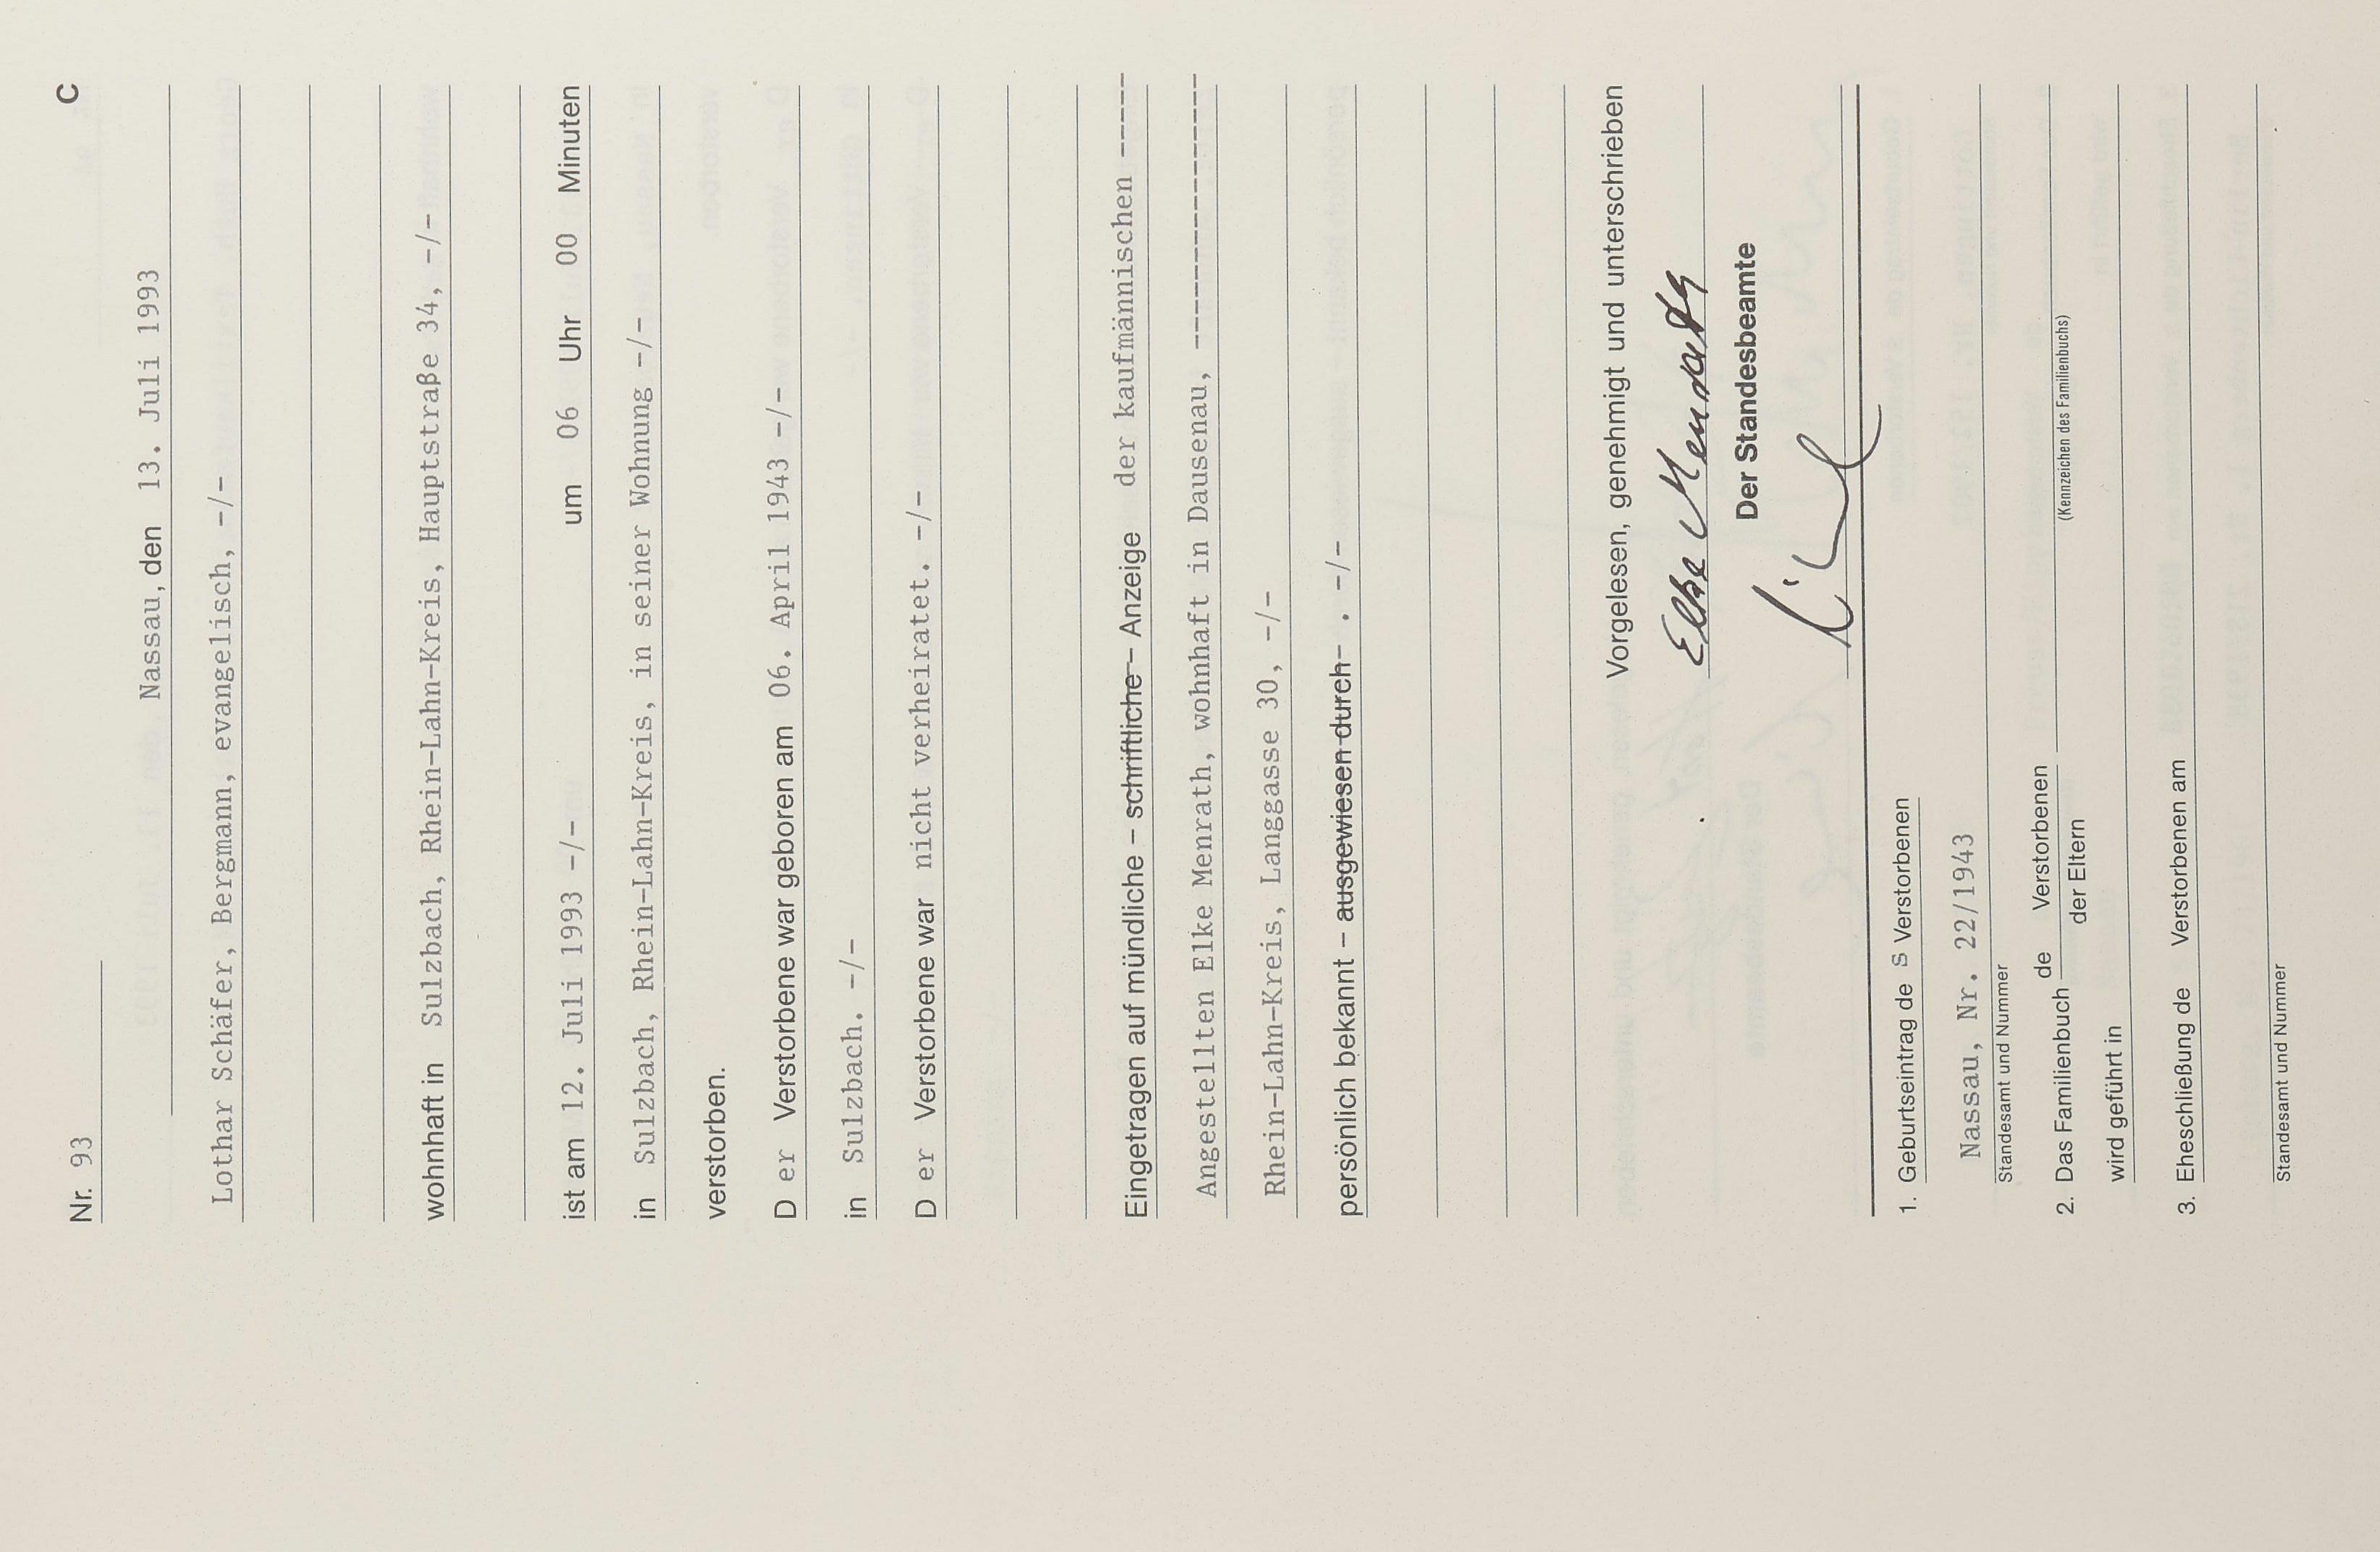 Nr. 93
C
Nassau, den 13. Juli 1993
Lothar Schäfer, Bergmann, evangelisch, -/-
wohnhaft in Sulzbach, Rhein-Lahn-Kreis, Hauptstraße 34, -/-
ist am 12. Juli 1993 -/- um 06 Uhr 00 Minuten
in Sulzbach, Rhein-Lahn-Kreis, in seiner Wohnung -/-
verstorben.
D er Verstorbene war geboren am 06. April 1943 -/-
in Sulzbach. -/-
D er Verstorbene war nicht verheiratet. -/-
Eingetragen auf mündliche – schriftliche – Anzeige der kaufmännischen ------
Angestellten Elke Menrath, wohnhaft in Dausenau, --------------------
Rhein-Lahn-Kreis, Langgasse 30, -/-
persönlich bekannt – ausgewiesen durch- . -/-
Vorgelesen, genehmigt und unterschrieben
Elke Menrath
Der Standesbeamte
1. Geburtseintrag de s Verstorbenen
Nassau, Nr. 22/1943
Standesamt und Nummer
2. Das Familienbuch de Verstorbenen
der Eltern
(Kennzeichen des Familienbuchs)
wird geführt in
3. Eheschließung de Verstorbenen am
Standesamt und Nummer